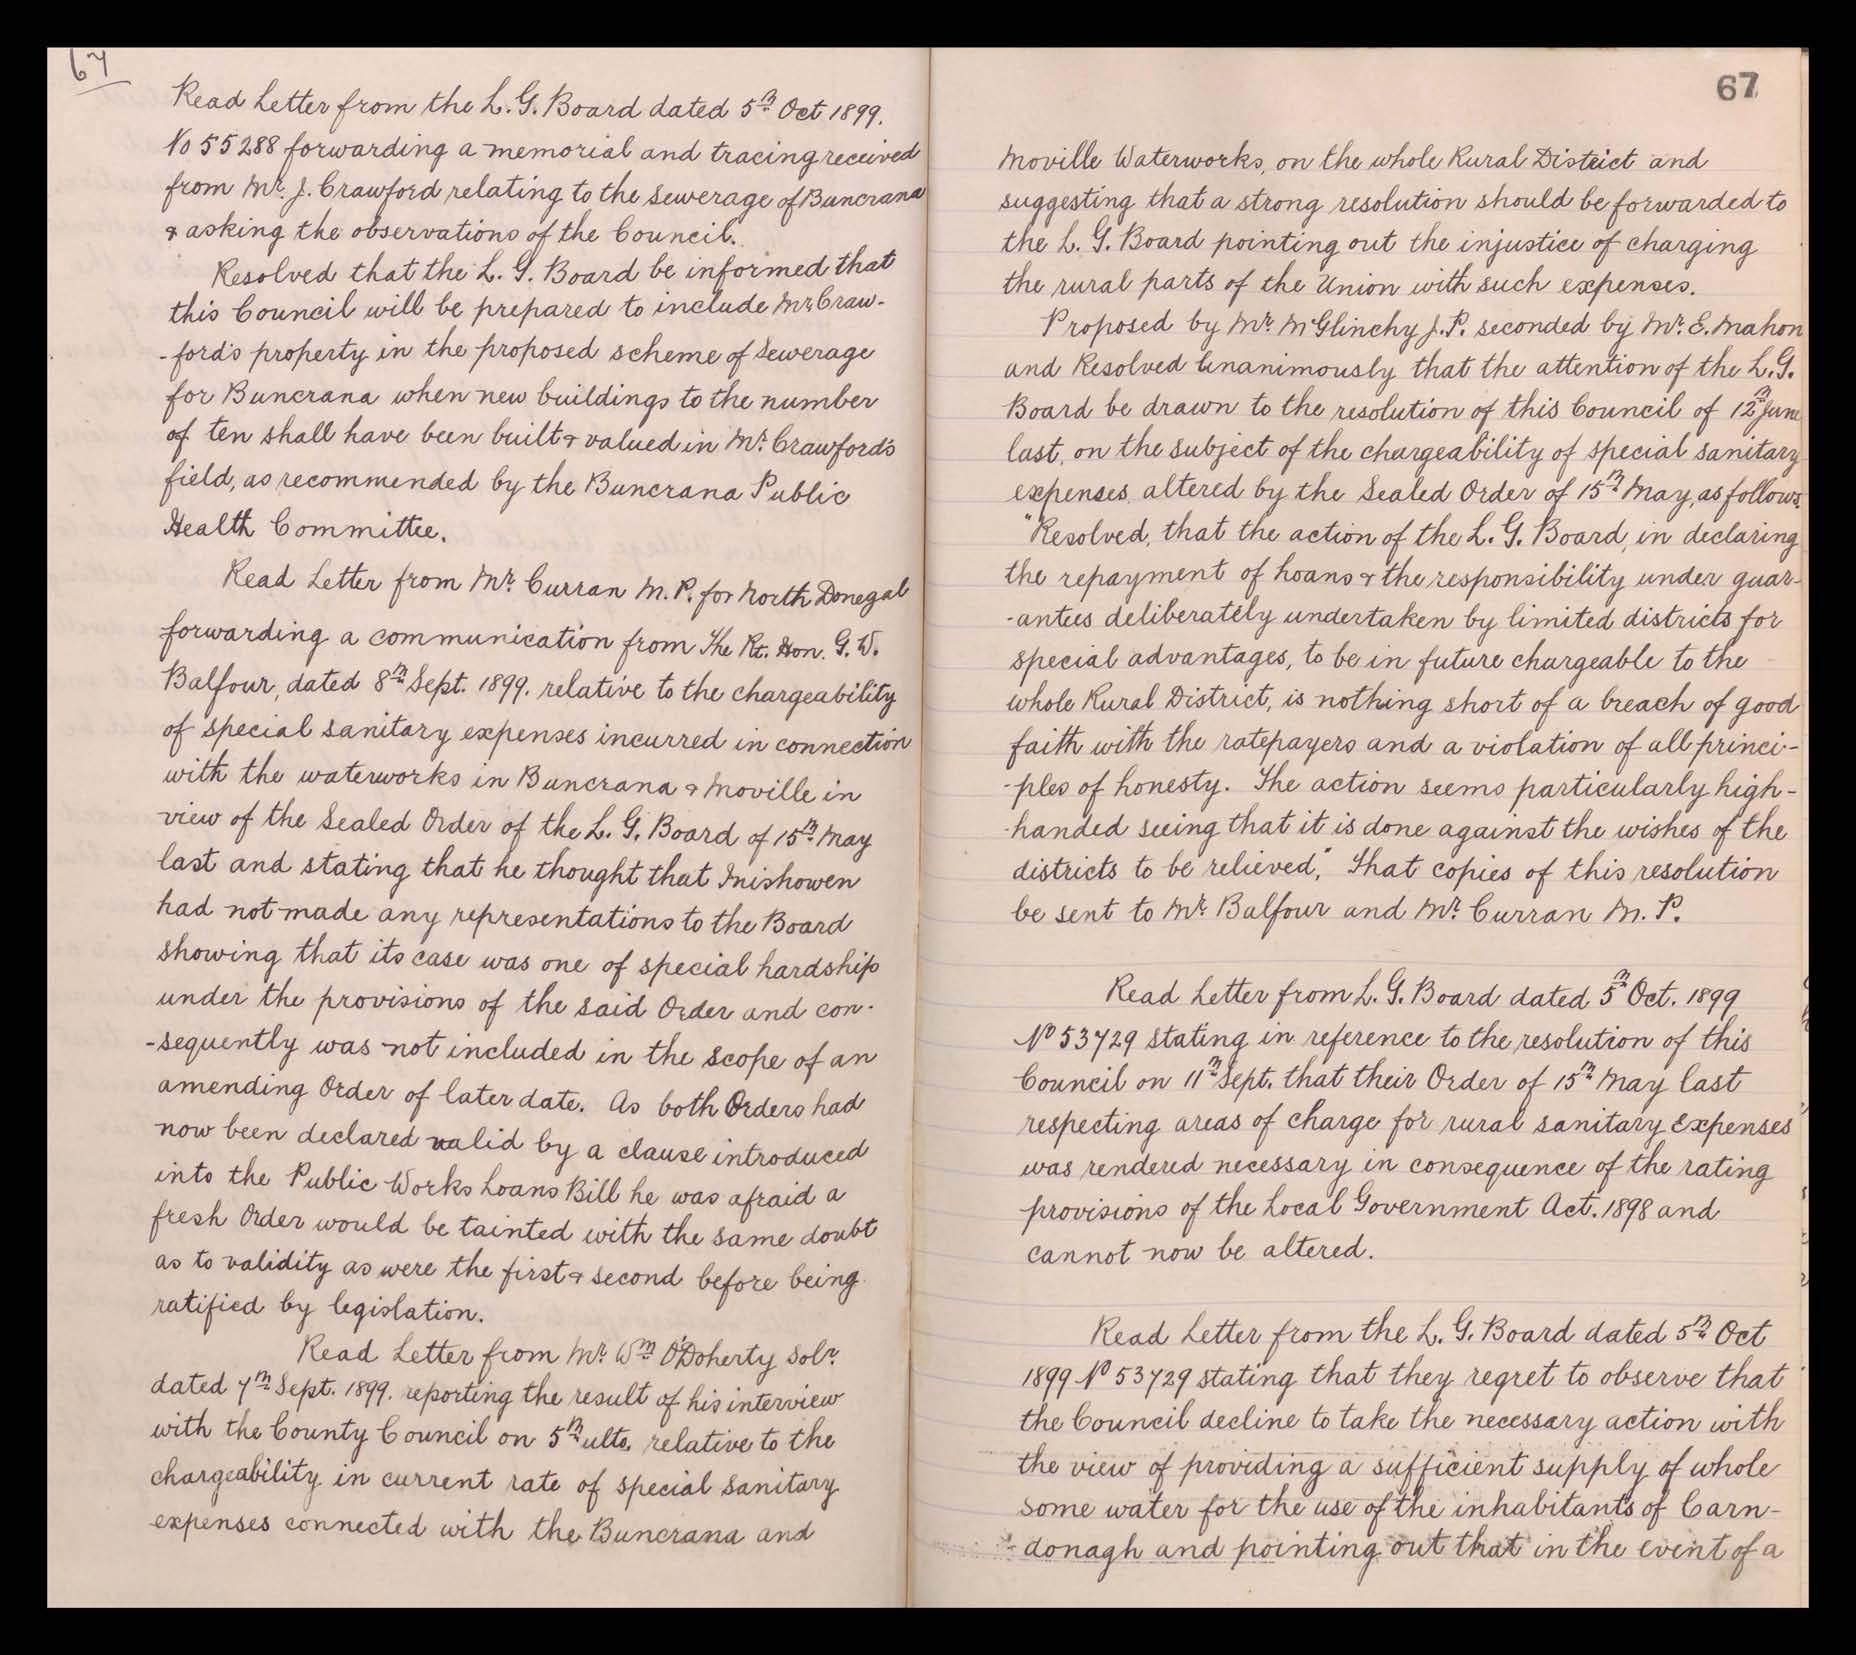 67
Read Letter from the L. G. Board dated 5th Oct 1899.
No 55288 forwarding a memorial and tracing received
from Mr. J. Crawford relating to the sewerage of Buncrana
& asking the observations of the Council.
Resolved that the L. G. Board be informed that
this Council will be prepared to include Mr Craw-
-ford's property in the proposed scheme of Sewerage
for Buncrana when new buildings to the number
of ten shall have been built & valued in Mr. Crawford's
field, as recommended by the Buncrana Public
Health Committee.
Read Letter from Mr. Curran M. P. for North Donegal
forwarding a communication from The Rt. Hon. G. W.
Balfour, dated 8th Sept. 1899. relative to the chargeability
of special sanitary expenses incurred in connection
with the waterworks in Buncrana & Moville in
view of the Sealed Order of the L. G. Board of 15th May
last and stating that he thought that Inishowen
had not made any representations to the Board
showing that its case was one of special hardship
under the provisions of the said Order and con-
-sequently was not included in the scope of an
amending Order of later date. As both Orders had
now been declared valid by a clause introduced
into the Public Works Loans Bill he was afraid a
fresh Order would be tainted with the same doubt
as to validity as were the first & second before being
ratified by legislation.
Read Letter from Mr. Wm O'Doherty Solr.
dated 7th Sept. 1899. reporting the result of his interview
with the County Council on 5th ulto. relative to the
chargeability in current rate of special sanitary
expenses connected with the Buncrana and
67
Moville Waterworks, on the whole Rural District and
suggesting that a strong resolution should be forwarded to
the L. G. Board pointing out the injustice of charging
the rural parts of the Union with such expenses.
Proposed by Mr. McGlinchy J. P. seconded by Mr. E. Mahon
and Resolved Unanimously that the attention of the L. G.
Board be drawn to the resolution of this Council of 12th June
last, on the subject of the chargeability of special sanitary
expenses altered by the Sealed Order of 15th May, as follows.
"Resolved, that the action of the L. G. Board, in declaring
the repayment of Loans & the responsibility under guar-
-antees deliberately undertaken by limited districts for
special advantages, to be in future chargeable to the
whole Rural District, is nothing short of a breach of good
faith with the ratepayers and a violation of all princi-
-ples of honesty. The action seems particularly high-
-handed seeing that it is done against the wishes of the
districts to be relieved," That copies of this resolution
be sent to Mr. Balfour and Mr. Curran M. P.
Read Letter from L. G. Board dated 5th Oct. 1899
No 53729 stating in reference to the resolution of this
Council on 11th Sept. that their Order of 15th May last
respecting areas of charge for rural sanitary Expenses
was rendered necessary in consequence of the rating
provisions of the Local Government Act. 1898 and
cannot now be altered.
Read Letter from the L. G. Board dated 5th Oct
1899 No 53729 stating that they regret to observe that
the Council decline to take the necessary action with
the view of providing a sufficient supply of whole
some water for the use of the inhabitants of Carn-
-donagh and pointing out that in the event of a